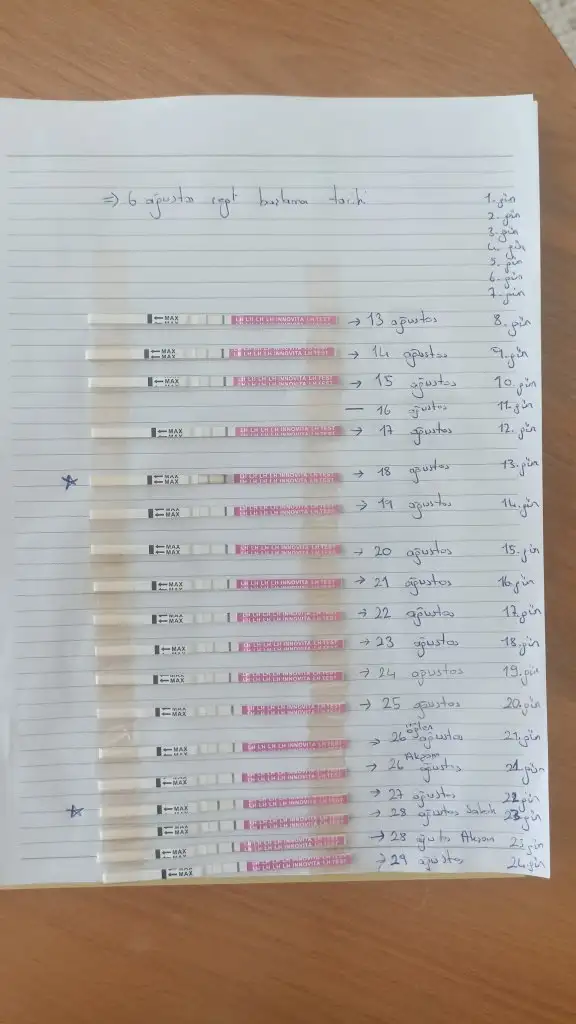 ⇒ 6 ağustos regl başlama tarihi
1. gün
2. gün
3. gün
4. gün
5. gün
6. gün
7. gün
←MAX LH LH LH LH INNOVITA LH TEST → 13 ağustos 8. gün
←MAX LH LH LH LH INNOVITA LH TEST → 14 ağustos 9. gün
←MAX LH LH LH LH INNOVITA LH TEST → 15 ağustos 10. gün
— 16 ağustos 11. gün
←MAX LH LH LH LH INNOVITA LH TEST → 17 ağustos 12. gün
☆ ←MAX LH LH LH LH INNOVITA LH TEST → 18 ağustos 13. gün
←MAX LH LH LH LH INNOVITA LH TEST → 19 ağustos 14. gün
←MAX LH LH LH LH INNOVITA LH TEST → 20 ağustos 15. gün
←MAX LH LH LH LH INNOVITA LH TEST → 21 ağustos 16. gün
←MAX LH LH LH LH INNOVITA LH TEST → 22 ağustos 17. gün
←MAX LH LH LH LH INNOVITA LH TEST → 23 ağustos 18. gün
←MAX LH LH LH LH INNOVITA LH TEST → 24 ağustos 19. gün
←MAX LH LH LH LH INNOVITA LH TEST → 25 ağustos 20. gün
←MAX LH LH LH LH INNOVITA LH TEST → 26 ağustos 21. gün
←MAX LH LH LH LH INNOVITA LH TEST → 26 Akşam ağustos 21. gün
☆ ←MAX LH LH LH LH INNOVITA LH TEST → 27 ağustos 22. gün
←MAX LH LH LH LH INNOVITA LH TEST → 28 ağustos Sabah 23. gün
←MAX LH LH LH LH INNOVITA LH TEST → 28 ağustos Akşam 23. gün
←MAX LH LH LH LH INNOVITA LH TEST → 29 ağustos 24. gün